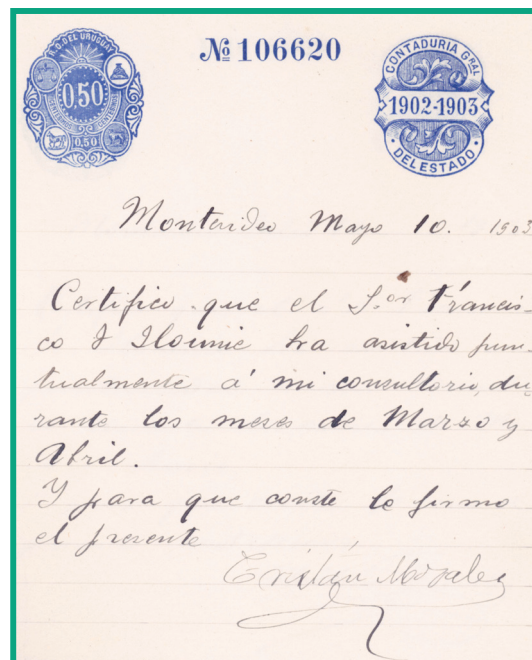 R.O. DEL URUGUAY
0.50
0.50
№ 106620
CONTADURIA GRAL
1902-1903
DEL ESTADO
Montevideo Mayo 10. 1903
Certifico que el S.or Francis-
co J ha asistido pun-
tualmente á mi consultorio, du-
rante los meses de Marzo y
Abril.
Y para que conste lo firmo
el presente
Tristán Morales